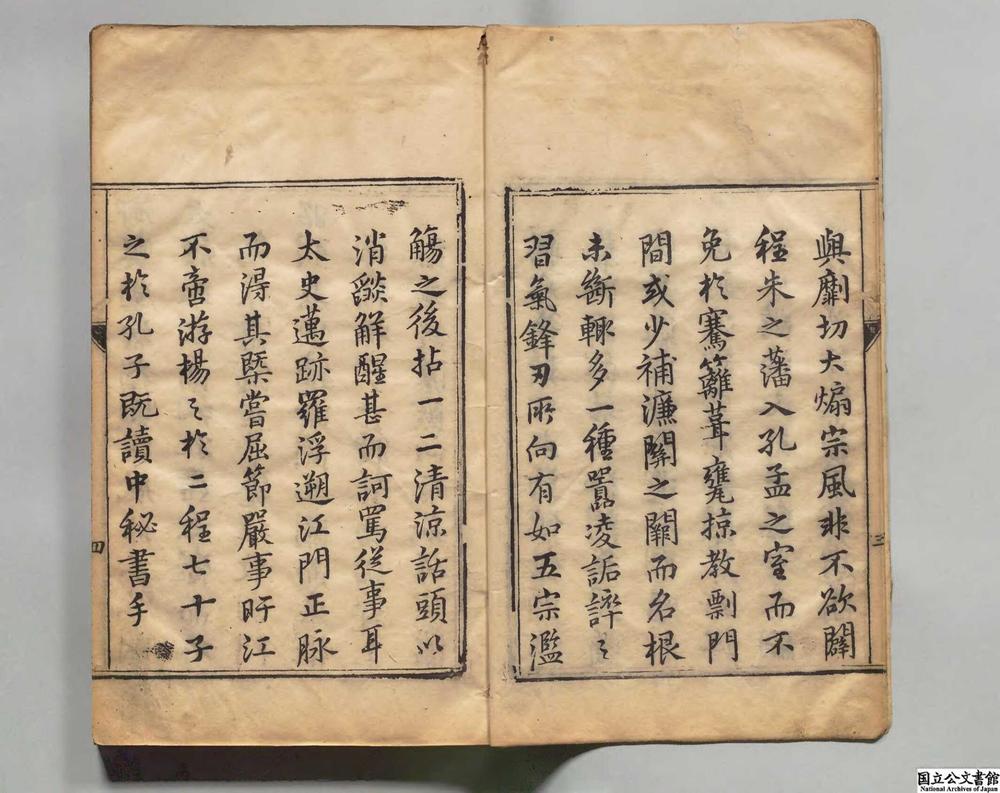 與劘切大煽宗風非不欲闢
程朱之藩入孔孟之室而不
免於騫籬葺甕掠教剽門
間或少補濂關之闕而名根
未斷輒多一種囂凌詬誶之
習氣鋒刃所向有如五宗濫
三
觴之後拈一二清涼話頭以
消燄解酲甚而訶罵從事耳
太史邁跡羅浮遡江門正脉
而淂其槩嘗屈節嚴事旴江
不啻游楊之於二程七十子
之於孔子既讀中秘書手
四
国立公文書館
National Archives of Japan